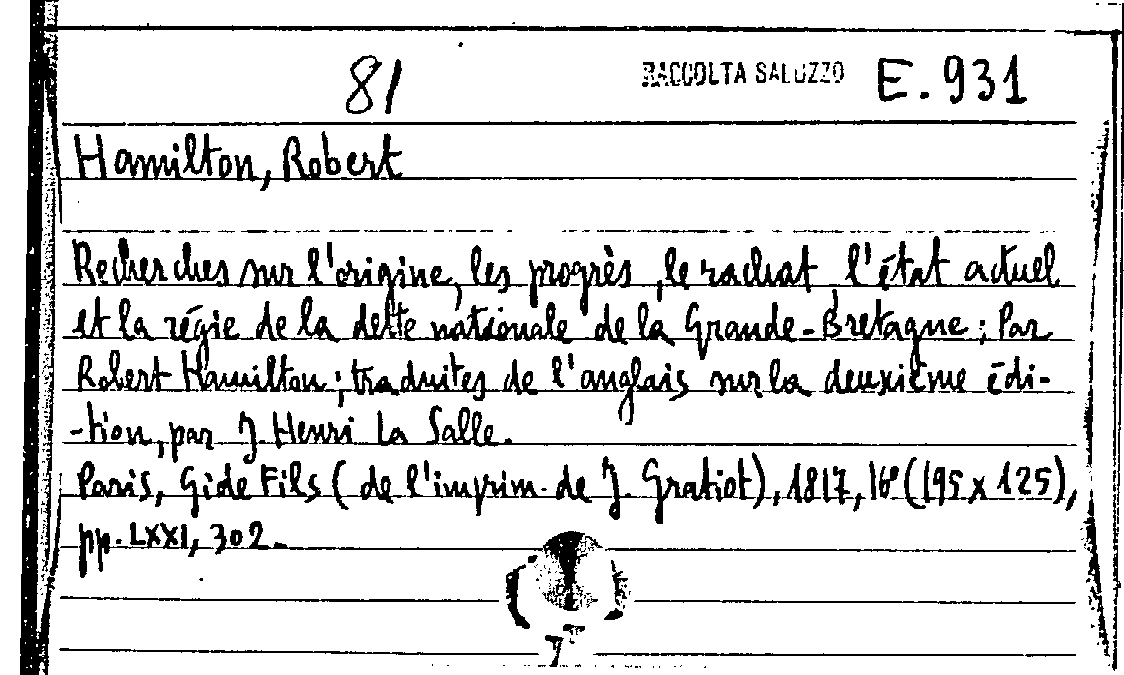 81 RACCOLTA SALUZZO E.931
Hamilton, Robert
Recherches sur l'origine, les progrès, le rachat, l'état actuel
et la régie de la dette nationale de la Grande-Bretagne; Par
Robert Hamilton; traduites de l'anglais sur la deuxième édi-
-tion, par J. Henri La Salle.
Paris, Gide Fils (de l'imprim. de J. Gratiot), 1817, 16° (195 x 125),
pp. LXXI, 302.